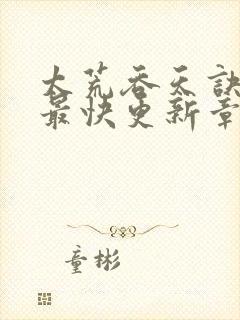 大荒吞天訣
最快更新章
童彬